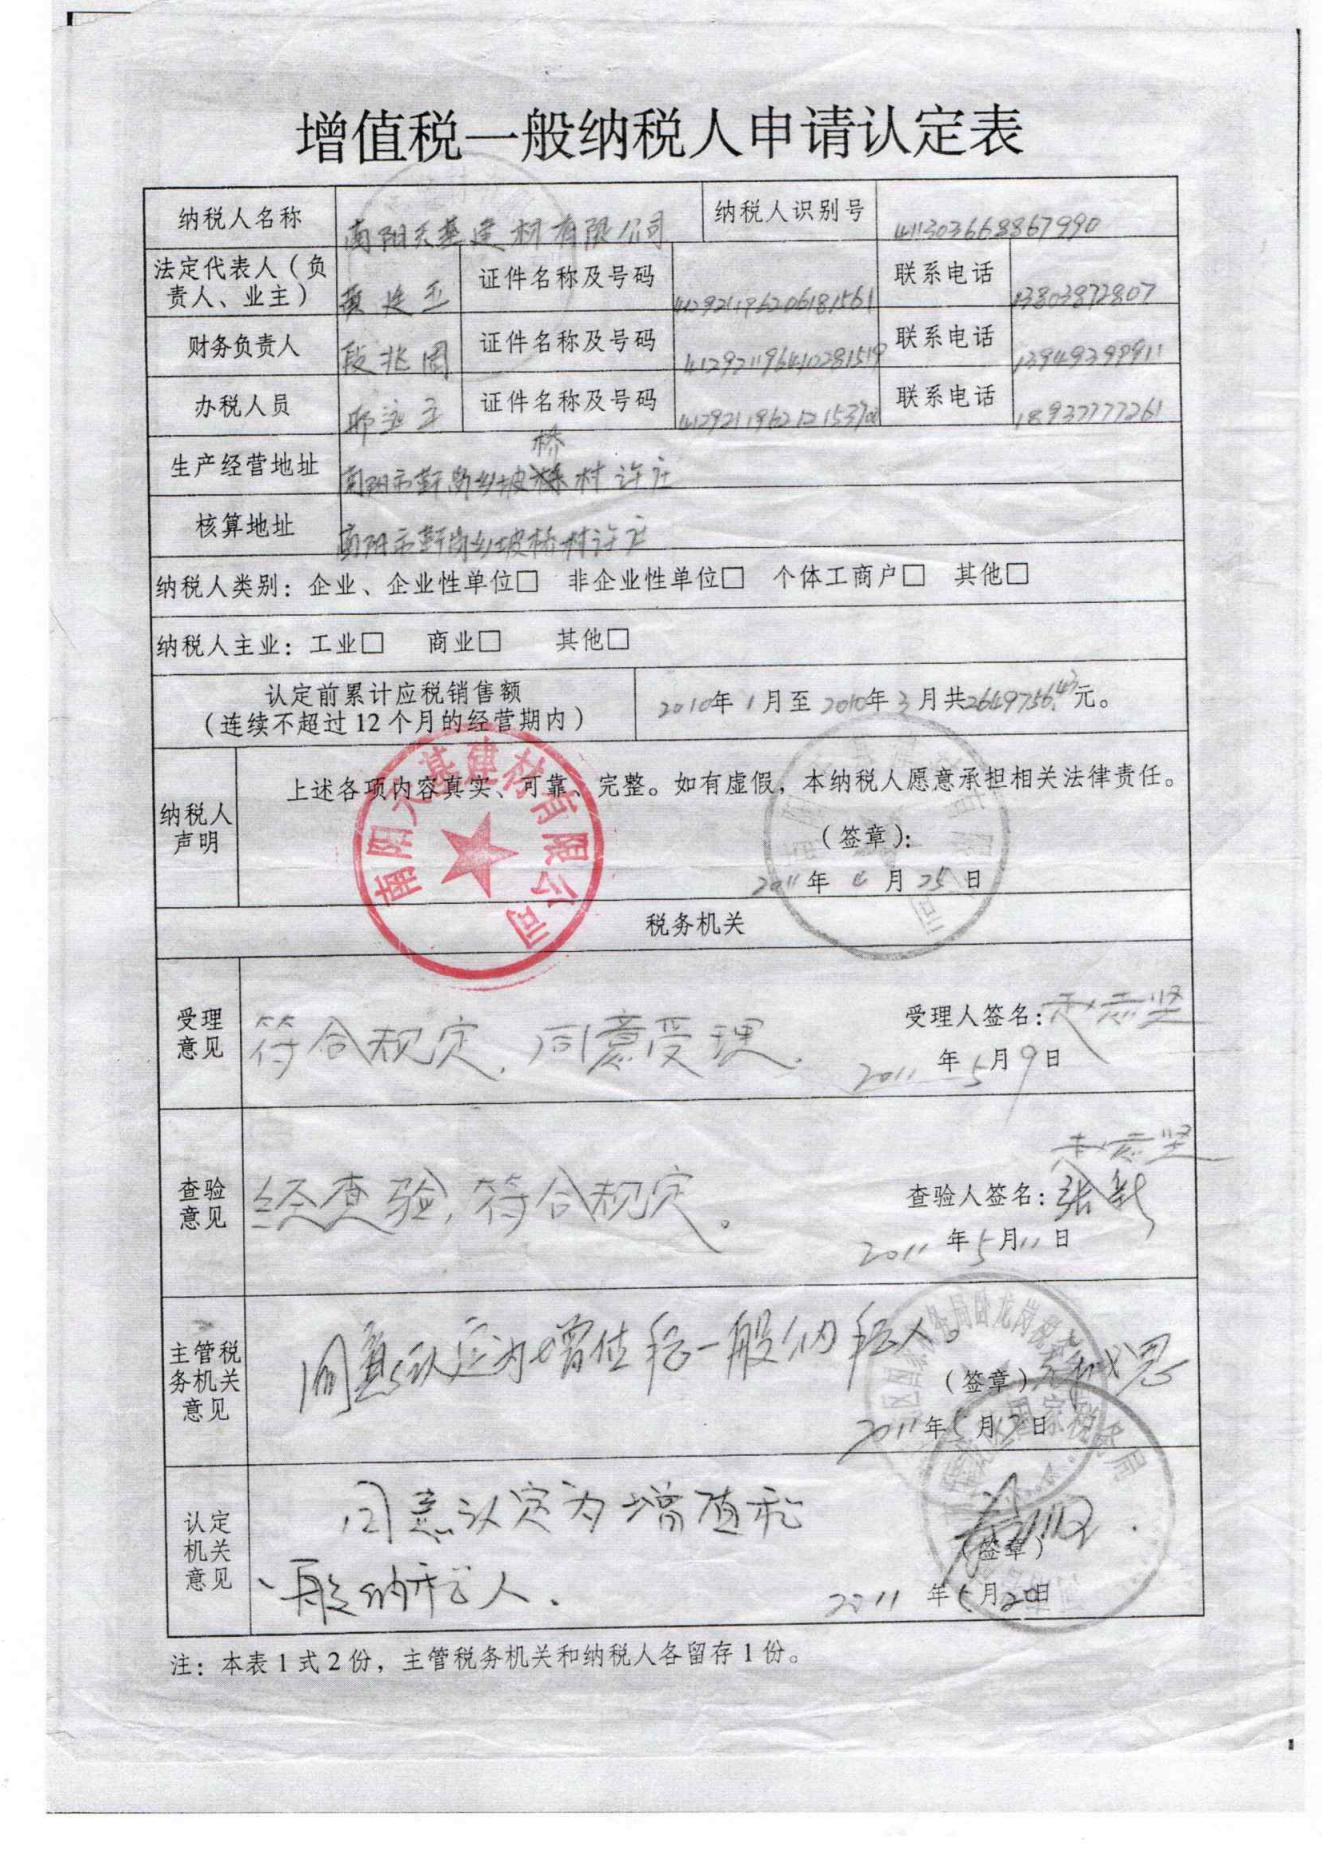 增值税一般纳税人申请认定表
纳税人名称 南阳天基建材有限公司 纳税人识别号 411303668867990
法定代表人（负责人、业主） 证件名称及号码 412921196206181561 联系电话 13803872807
财务负责人 段兆周 证件名称及号码 412921196410281519 联系电话 13949399911
办税人员 证件名称及号码 联系电话 18937777261
桥
生产经营地址 南阳市靳岗乡坡 村许庄
核算地址 南阳市靳岗乡坡桥村许庄
纳税人类别：企业、企业性单位□ 非企业性单位□ 个体工商户□ 其他□
纳税人主业：工业□ 商业□ 其他□
认定前累计应税销售额
（连续不超过12个月的经营期内） 2010年1月至2010年3月共2649756.47元。
纳税人声明 上述各项内容真实、可靠、完整。如有虚假，本纳税人愿意承担相关法律责任。
（签章）：
2011年4月25日
南阳天基建材有限公司
税务机关
受理意见 符合规定，同意受理． 受理人签名：赵志坚
2011年5月9日
赵志坚
查验意见 经查验，符合规定。 查验人签名：张新
2011年5月11日
主管税务机关意见 同意认定为增值税一般纳税人。 （签章）
2011年5月 日
认定机关意见 同意认定为增值税
一般纳税人． （签章）
2011年5月20日
注：本表1式2份，主管税务机关和纳税人各留存1份。